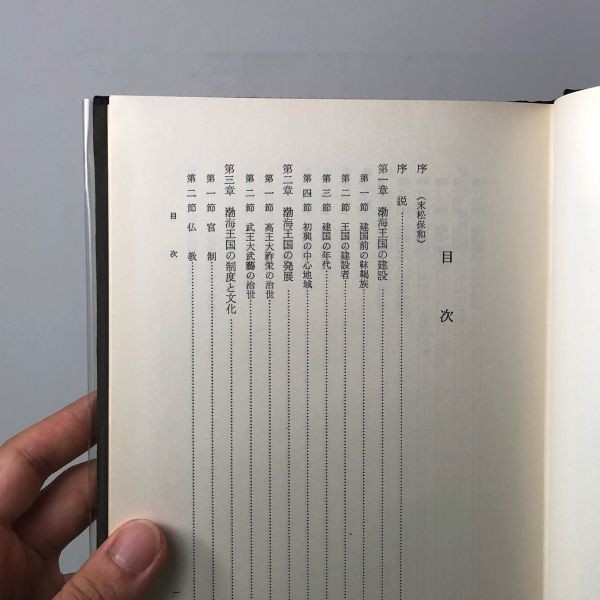 目次
序（末松保和）
序説
第一章 渤海王国の建設
第一節 建国前の靺鞨族
第二節 王国の建設者
第三節 建国の年代
第四節 初興の中心地域
第二章 渤海王国の発展
第一節 高王大祚栄の治世
第二節 武王大武藝の治世
第三章 渤海王国の制度と文化
第一節 官制
第二節 仏教
目次
一